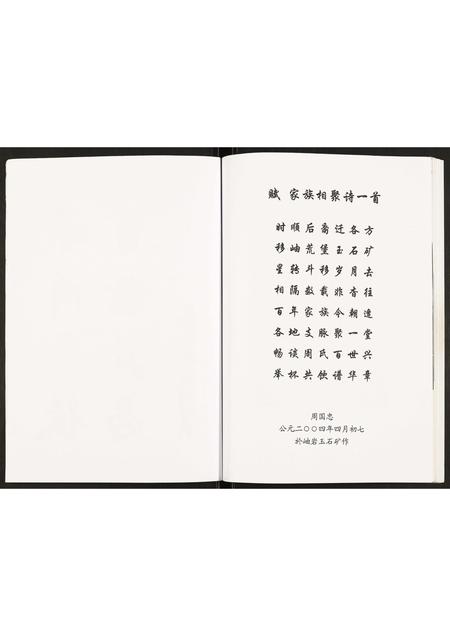 赋 家族相聚诗一首
时顺后裔迁各方
移岫荒堡玉石矿
星转斗移岁月去
相隔数载非杳往
百年家族令朝逢
各地支脉聚一堂
畅谈周氏百世兴
举杯共饮谱华章
周国忠
公元二〇〇四年四月初七
於岫岩玉石矿作